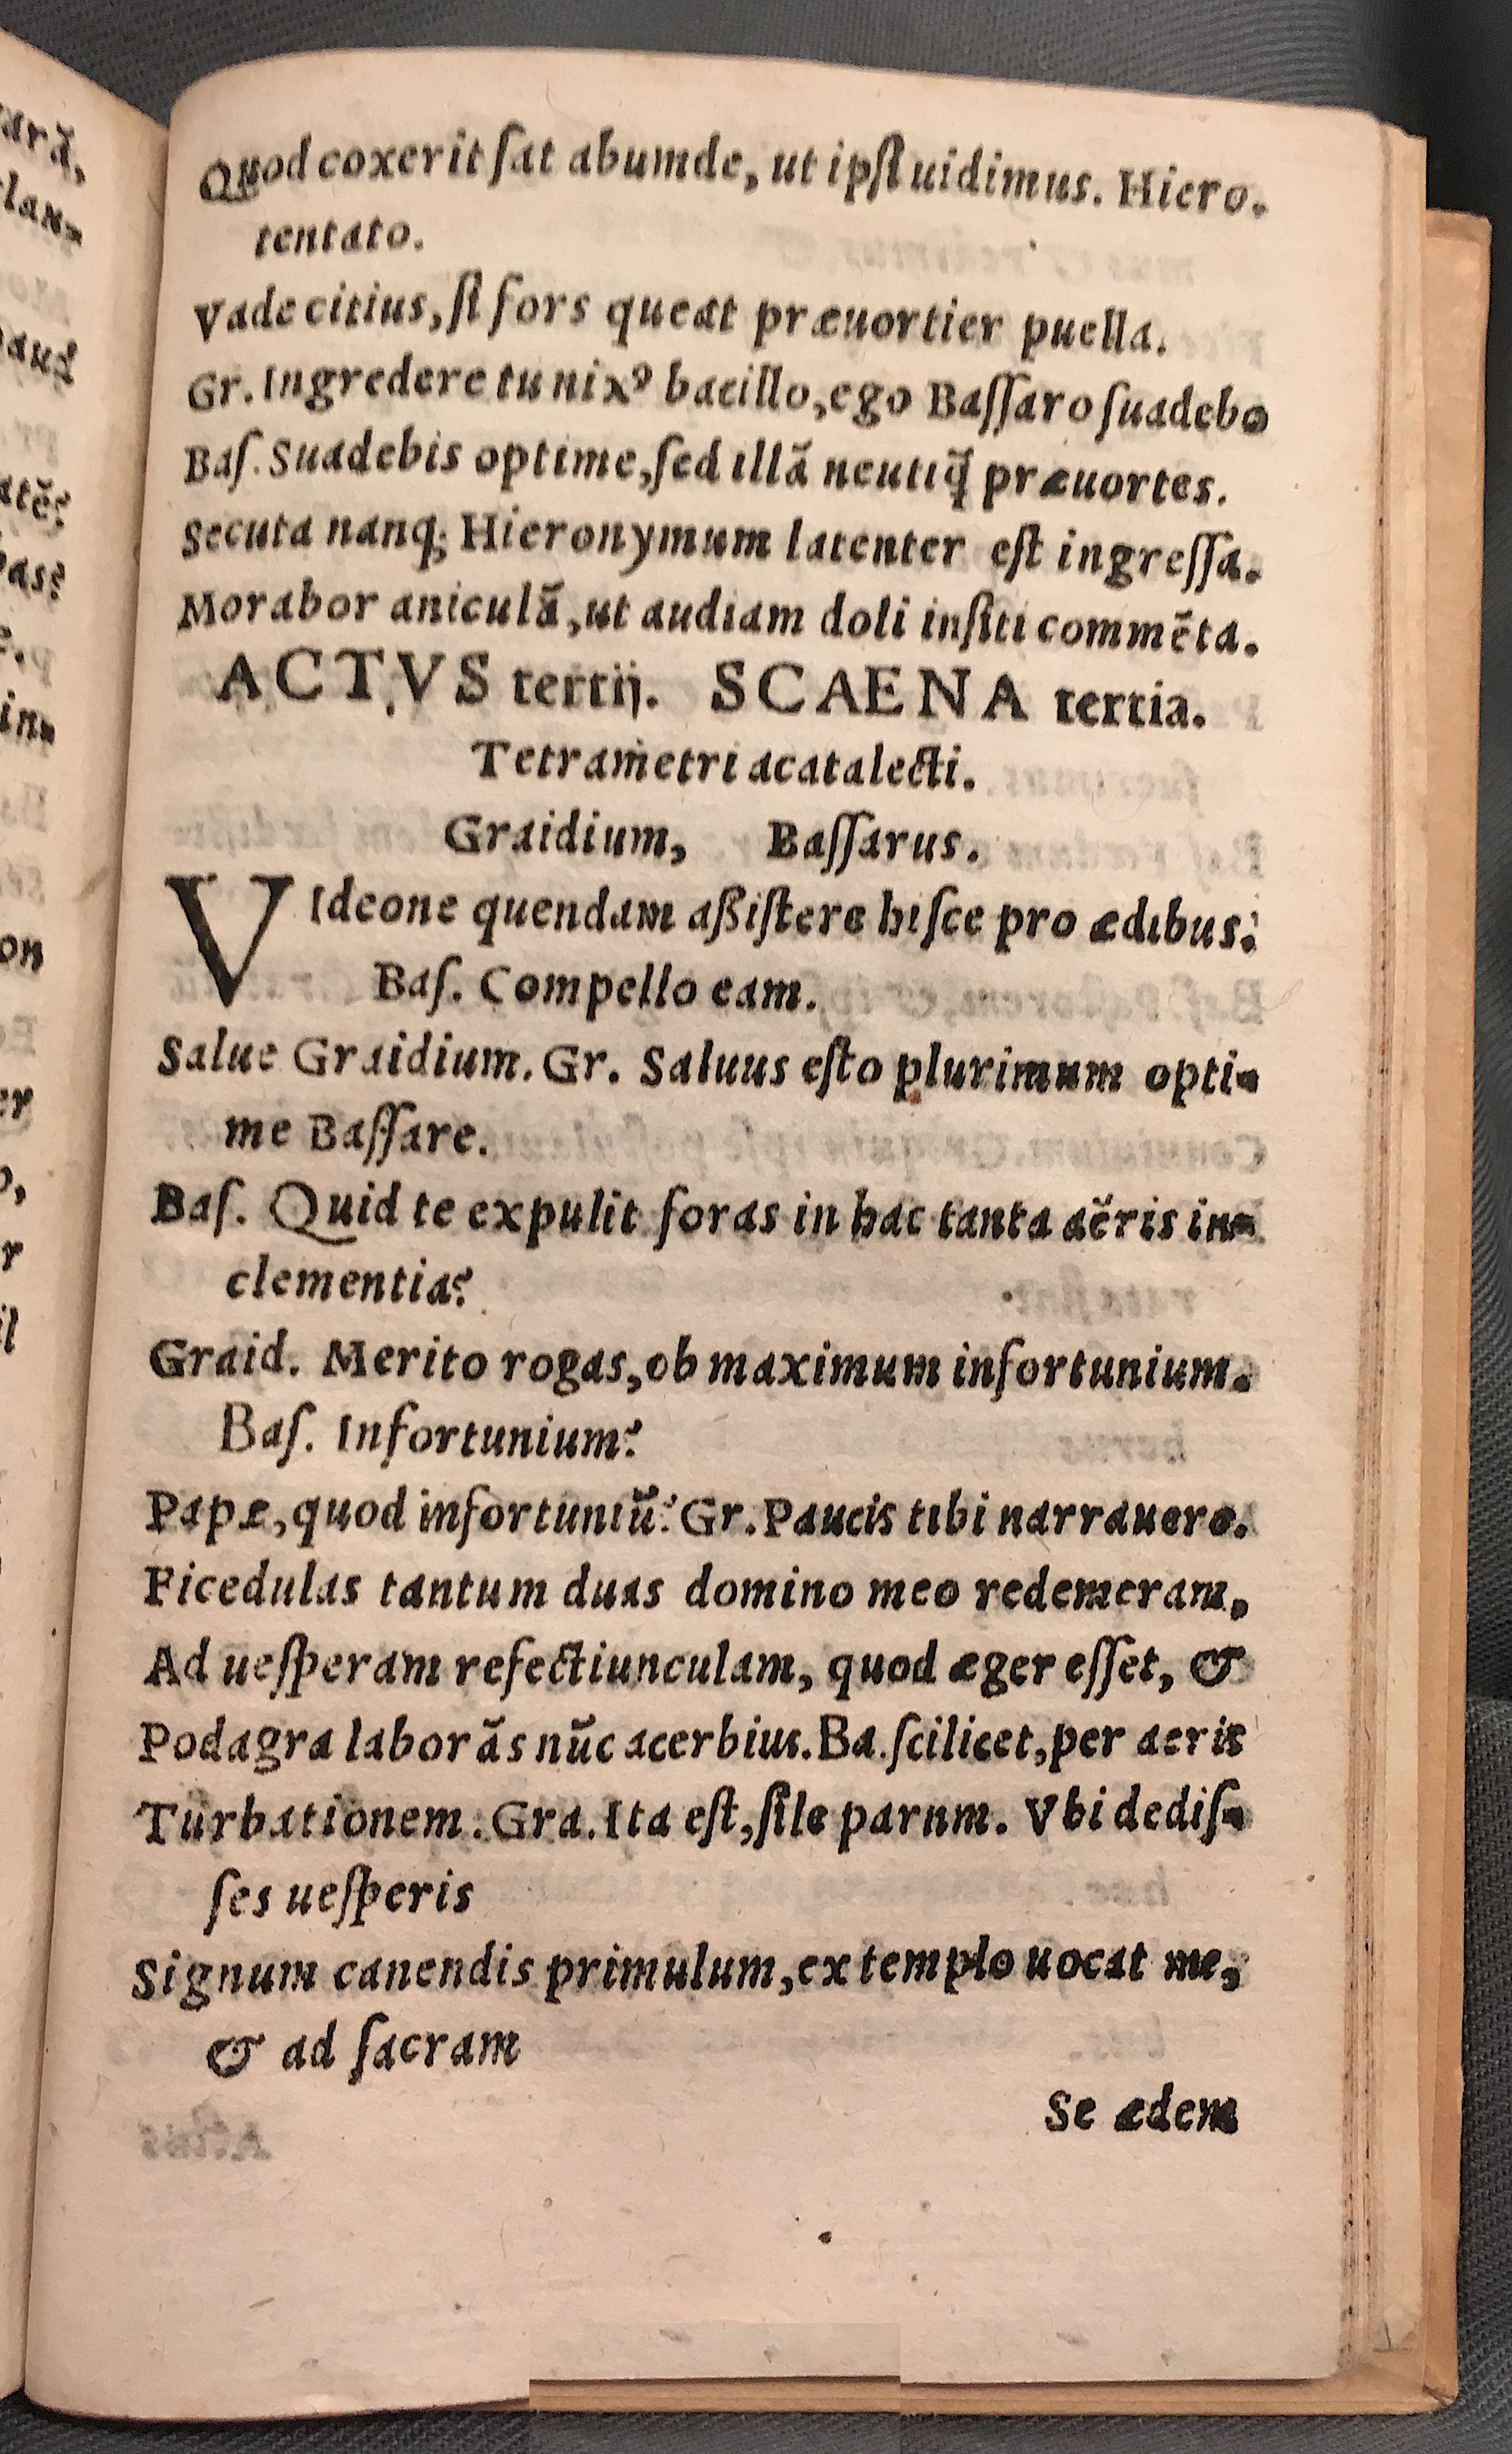 Quod coxerit ſat abumde, ut ipſi uidimus. Hiero.
tentato.
Vade citius, ſi fors queat præuortier puella.
Gr. Ingredere tu nixꝰ bacillo, ego Baſſaro ſuadebo
Baſ. Suadebis optime, ſed illā neutiq̃ præuortes.
Secuta nanq; Hieronymum latenter eſt ingreſſa.
Morabor aniculā, ut audiam doli inſiti commēta.
ACTVS tertij. SCAENA tertia.
Tetrametri acatalecti.
Graidium, Baſſarus.
VIdeone quendam aßiſtere hiſce pro ædibus?
Baſ. Compello eam.
Salue Graidium. Gr. Saluus eſto plurimum opti-
me Baſſare.
Baſ. Quid te expulit foras in hac tanta aëris in-
clementia?
Graid. Merito rogas, ob maximum infortunium.
Baſ. Infortunium?
Papæ, quod infortuniū? Gr. Paucis tibi narrauero.
Ficedulas tantum duas domino meo redemeram,
Ad ueſperam refectiunculam, quod æger eſſet, &
Podagra laborās nūc acerbius. Ba. ſcilicet, per aeris
Turbationem. Gra. Ita eſt, ſile parnm. Vbi dediſ-
ſes ueſperis
Signum canendis primulum, extemplo uocat me,
& ad ſacram
Se ædem